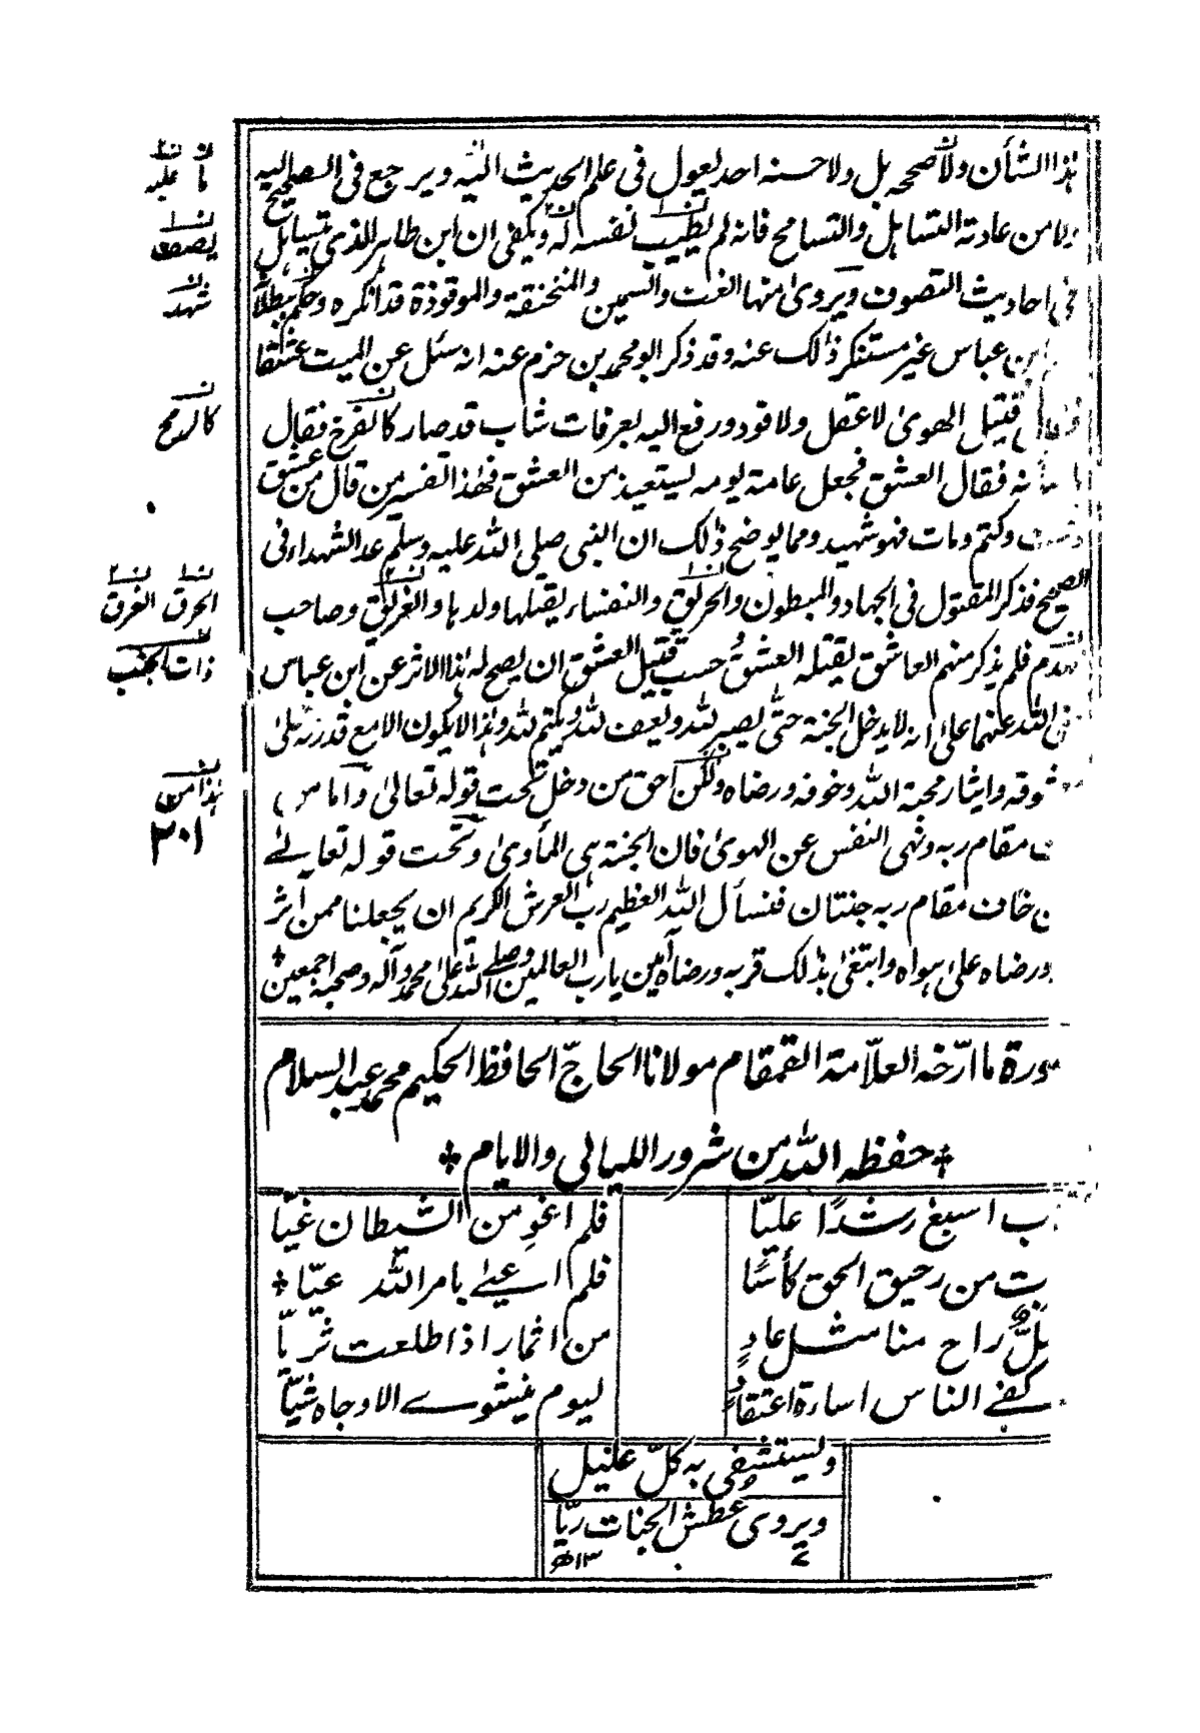 هذا الشأن ولا صححه بل ولا حسنه احد يعول في علم الحديث اليه ويرجع في الصحيح اليه
ولا من عادته التساهل والتسامح فانه لم يطيب نفسه له ويكفي ان ابن طاهر الذي يتساهل
في احاديث التصوف ويروى منها الغث والسمين والمنخنقة والموقوذة قد انكره وحكم ببطلانه
ابن عباس غير مستنكر ذلك عنه وقد ذكر ابو محمد بن حزم عنه انه سئل عن الميت عشقا
فقال قتيل الهوى لا عقل ولا قود ورفع اليه بعرفات شاب قد صار كالفرخ فقال
ما شأنه فقال العشق فجعل عامة يومه يستعيذ من العشق فهذا تفسير من قال من عشق
وعف وكتم ومات فهو شهيد ومما يوضح ذلك ان النبى صلى الله عليه وسلم عد الشهداء فى
الصحيح فذكر المقتول فى الجهاد والمبطون والحريق والنفساء يقتلها ولدها والغريق وصاحب
الهدم فلم يذكر منهم العاشق يقتله العشق حسب قتيل العشق ان يصح له هذا الاثر عن ابن عباس
رضى الله عنهما على انه لا يدخل الجنة حتى يصبر لله ويعف لله ويكتم لله وهذا لا يكون الا مع قدرته على
معشوقه وايثار محبة الله وخوفه ورضاه ولكن احق من دخل تحت قوله تعالى واما من
مقام ربه ونهى النفس عن الهوى فان الجنة هى المأوى وتحت قوله تعالى
خاف مقام ربه جنتان فنسأل الله العظيم رب العرش الكريم ان يجعلنا ممن آثر
ورضاه على هواه وابتغى بذلك قربه ورضاه آمين يا رب العالمين وصلى الله على محمد وآله وصحبه اجمعين
ما
عليه
يصعق
شهد
كالرمح
الحرق
الغرق
ذات الجنب
هذا من
٢٠١
صورة ما ارّخه العلّامة القمقام مولانا الحاجّ الحافظ الحكيم محمد عبد السلام
حفظه الله من شرور الليالى والايام
اسبغ رشدًا عليّا
فلم اغو من الشيطان غيّا
من رحيق الحق كأسًا
فلم اسعى بامر الله عيّا
راح منا مثل عادٍ
من اثمار اذ اطلعت ثريّا
كفى الناس اسارة اعتقاد
ليوم يشوى الاوجاه شيّا
وليستشفى به كلّ عليل
ويروى عطش الجنات ريّا